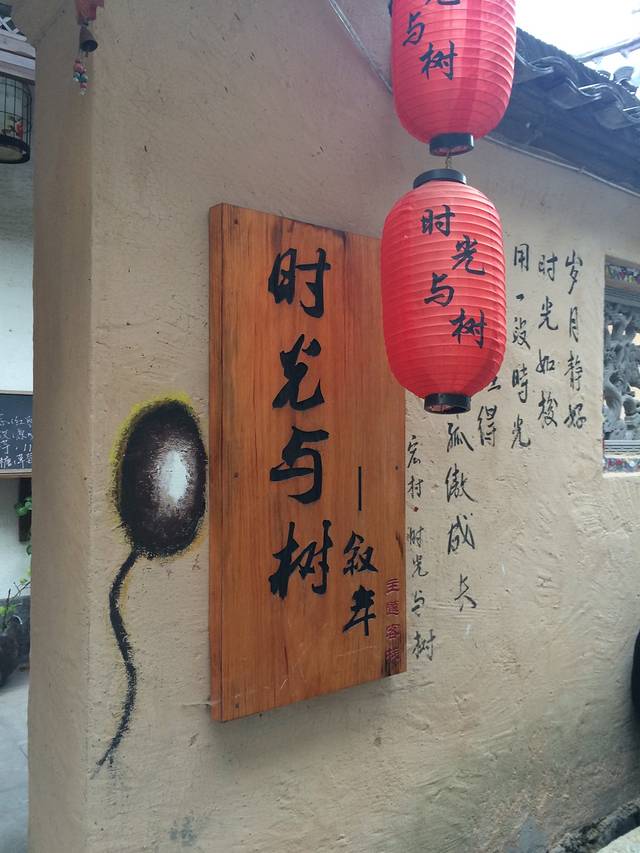 与树
时光与树
时光与树
一叙
客栈
岁月静好
时光如梭
用一段時光
得
孤傲成长
宏村·时光与树